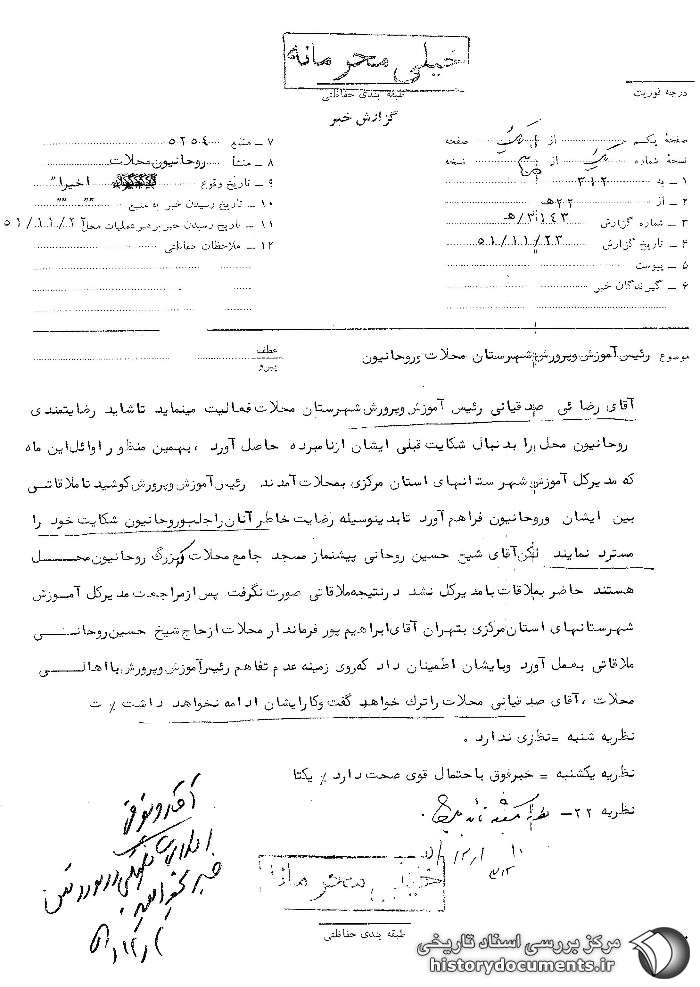 خیلی محرمانه
طبقه بندی حفاظتی
درجه فوریت
گزارش خبر
صفحه یکم از یک صفحه
نسخه شماره یک از نسخه
۱ – به ۳۱۲
۲ – از ۲۲ هـ
۳ – شماره گزارش ۳۱۴۳/هـ
۴ – تاریخ گزارش ۵۱/۱۱/۲۳
۵ – پیوست
۶ – گیرندگان خبر
۷ – منبع ۵۲۵۴
۸ – منشأ روحانیون محلات
۹ – تاریخ وقوع اخیرا"
۱۰ – تاریخ رسیدن خبر به منبع "" ""
۱۱ – تاریخ رسیدن خبر برهبر عملیات محل ۵۱/۱۱/۲
۱۲ – ملاحظات حفاظتی
موضوع رئیس آموزش وپرورش شهرستان محلات وروحانیون
عطف
پیرو
آقای رضائی صدقیانی رئیس آموزش وپرورش شهرستان محلات فعالیت مینماید تاشاید رضایتمندی
روحانیون محل را بدنبال شکایت قبلی ایشان ازنامبرده حاصل آورد ، بهمین منظور اوائل این ماه
که مدیرکل آموزش شهرستانهای استان مرکزی بمحلات آمدند رئیس آموزش وپرورش کوشید تاملاقاتی
بین ایشان وروحانیون فراهم آورد تابدینوسیله رضایت خاطر آنان راجلب وروحانیون شکایت خود را
مسترد نمایند لکن آقای شیخ حسین روحانی پیشنماز مسجد جامع محلات که بزرگ روحانیون محل
هستند حاضر بملاقات بامدیرکل نشد درنتیجه ملاقاتی صورت نگرفت پس ازمراجعت مدیرکل آموزش
شهرستانهای استان مرکزی بتهران آقای ابراهیم پور فرماندار محلات ازحاج شیخ حسین روحانی
ملاقاتی بعمل آورد وبایشان اطمینان داد که روی زمینه عدم تفاهم رئیس آموزش وپرورش بااهالی
محلات ، آقای صدقیانی محلات راترک خواهد گفت وکارایشان ادامه نخواهد داشت ٪ ت
نظریه شنبه = نظری ندارد .
نظریه یکشنبه = خبرفوق باحتمال قوی صحت دارد ٪ یکتا
نظریه ۲۲–
خیلی محرمانه
طبقه بندی حفاظتی
مرکز بررسی اسناد تاریخی
historydocuments.ir